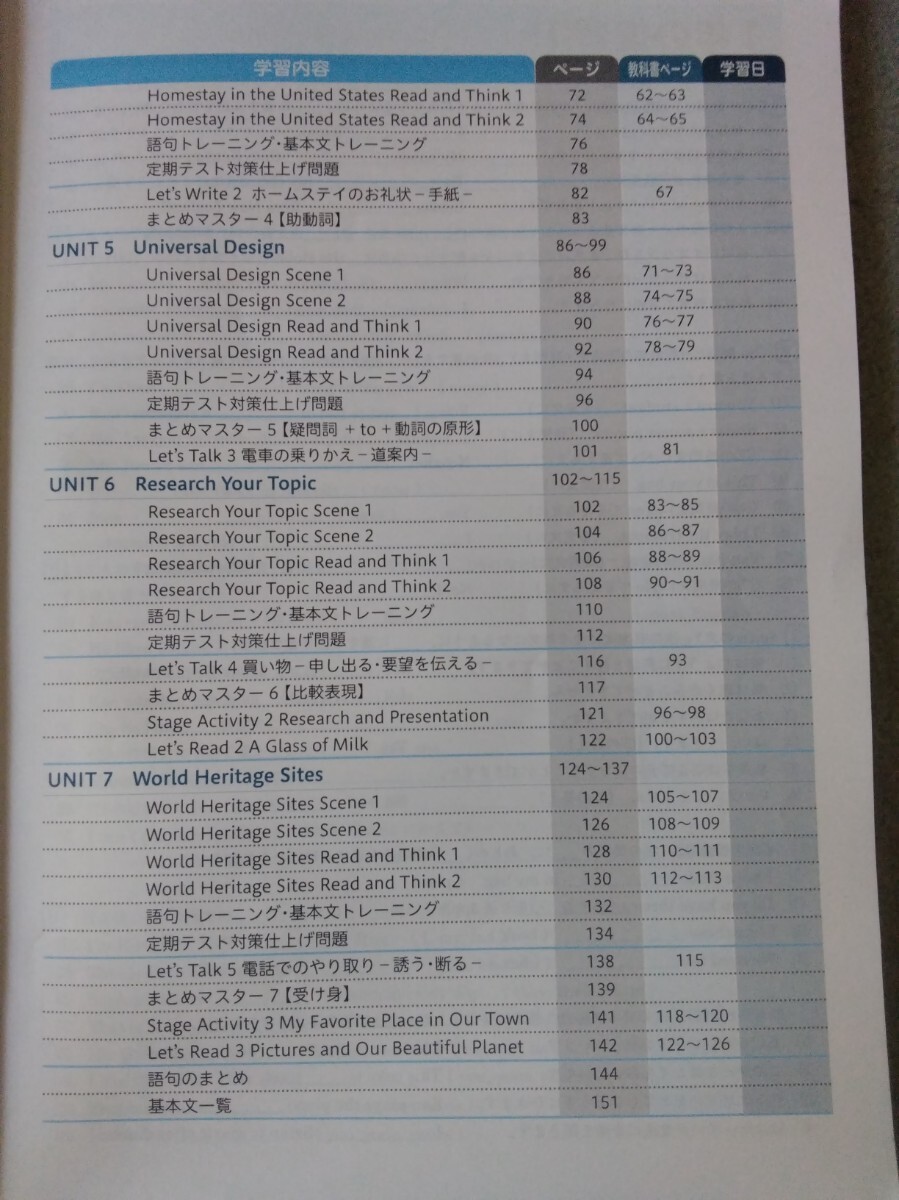 学習内容 ページ 教科書ページ 学習日
Homestay in the United States Read and Think 1 72 62〜63
Homestay in the United States Read and Think 2 74 64〜65
語句トレーニング・基本文トレーニング 76
定期テスト対策仕上げ問題 78
Let's Write 2 ホームステイのお礼状－手紙－ 82 67
まとめマスター 4【助動詞】 83
UNIT 5 Universal Design 86〜99
Universal Design Scene 1 86 71〜73
Universal Design Scene 2 88 74〜75
Universal Design Read and Think 1 90 76〜77
Universal Design Read and Think 2 92 78〜79
語句トレーニング・基本文トレーニング 94
定期テスト対策仕上げ問題 96
まとめマスター 5【疑問詞 + to + 動詞の原形】 100
Let's Talk 3 電車の乗りかえ－道案内－ 101 81
UNIT 6 Research Your Topic 102〜115
Research Your Topic Scene 1 102 83〜85
Research Your Topic Scene 2 104 86〜87
Research Your Topic Read and Think 1 106 88〜89
Research Your Topic Read and Think 2 108 90〜91
語句トレーニング・基本文トレーニング 110
定期テスト対策仕上げ問題 112
Let's Talk 4 買い物－申し出る・要望を伝える－ 116 93
まとめマスター 6【比較表現】 117
Stage Activity 2 Research and Presentation 121 96〜98
Let's Read 2 A Glass of Milk 122 100〜103
UNIT 7 World Heritage Sites 124〜137
World Heritage Sites Scene 1 124 105〜107
World Heritage Sites Scene 2 126 108〜109
World Heritage Sites Read and Think 1 128 110〜111
World Heritage Sites Read and Think 2 130 112〜113
語句トレーニング・基本文トレーニング 132
定期テスト対策仕上げ問題 134
Let's Talk 5 電話でのやり取り－誘う・断る－ 138 115
まとめマスター 7【受け身】 139
Stage Activity 3 My Favorite Place in Our Town 141 118〜120
Let's Read 3 Pictures and Our Beautiful Planet 142 122〜126
語句のまとめ 144
基本文一覧 151